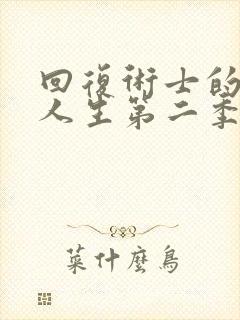 回復術士的
人生第二季
菜什麼鳥